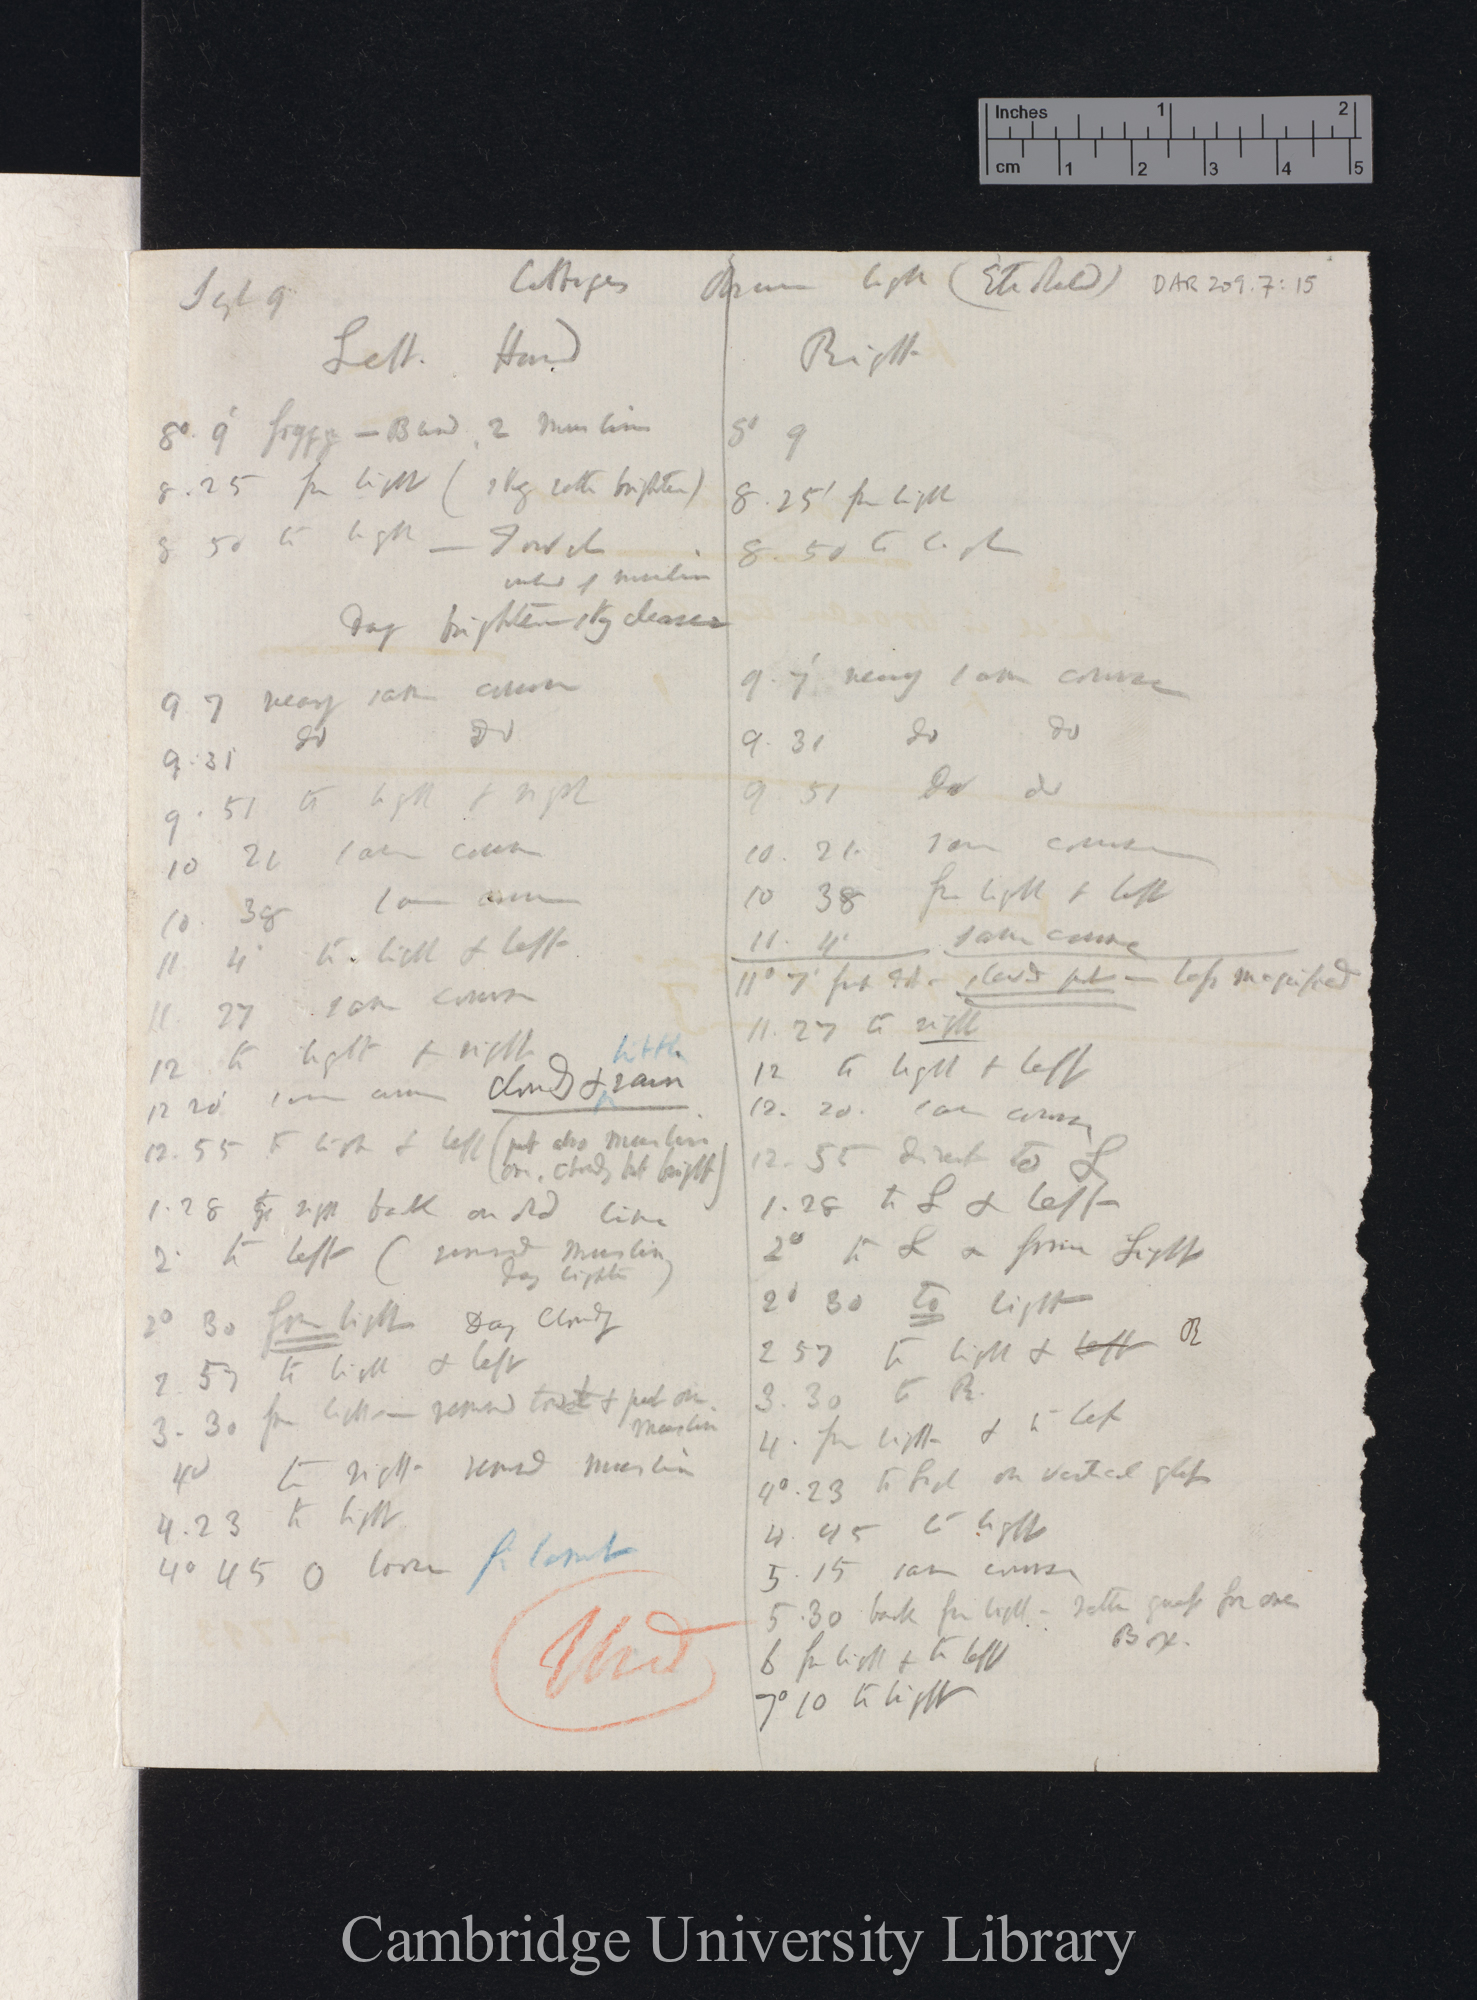 Inches 1 2
cm 1 2 3 4 5
Sept 9 Cabbages light DAR 209.7:15
Left. Hand
8° 9' foggy — 2 muslin
8.25 from light ( sky rather brighter)
8 50 to light —
of muslin
Day brighter sky clearer
9 7 nearly same course
9.31 do do
9.51 to light & right
10 21 same course
10. 38 same course
11 4' to light & left
11. 27 same course
12 to light & right little
12 20' same course cloudy & rain
12.55 to light & left (put also muslin
on, cloudy but bright)
1.28 to right back on old line
2° to left ( removed muslin
day lighter )
2° 30 from light Day Cloudy
2. 57 to light & left
3. 30 from light — removed & put on
muslin
4° to right removed muslin
4.23 to light
4° 45 0
Used
Right
8° 9
8.25' from light
8. 50 to light
9.7' nearly same course
9. 31 do do
9 51 do do
10. 21. same course
10 38 from light & left
11. 4' same course
11° 7' put — less magnified
11. 27 to right
12 to light & left
12. 20. same course
12. 55 direct to L
1.28 to L & left
2° to L & from Light
2° 30 to light
2 57 to light & left R
3. 30 to R.
4. from light & to left
4°.23 to light on vertical glass
4. 45 to light
5.15 same course
5.30 back from light — rather guess for over
Box.
6 from light & to left
7° 10 to light
Cambridge University Library